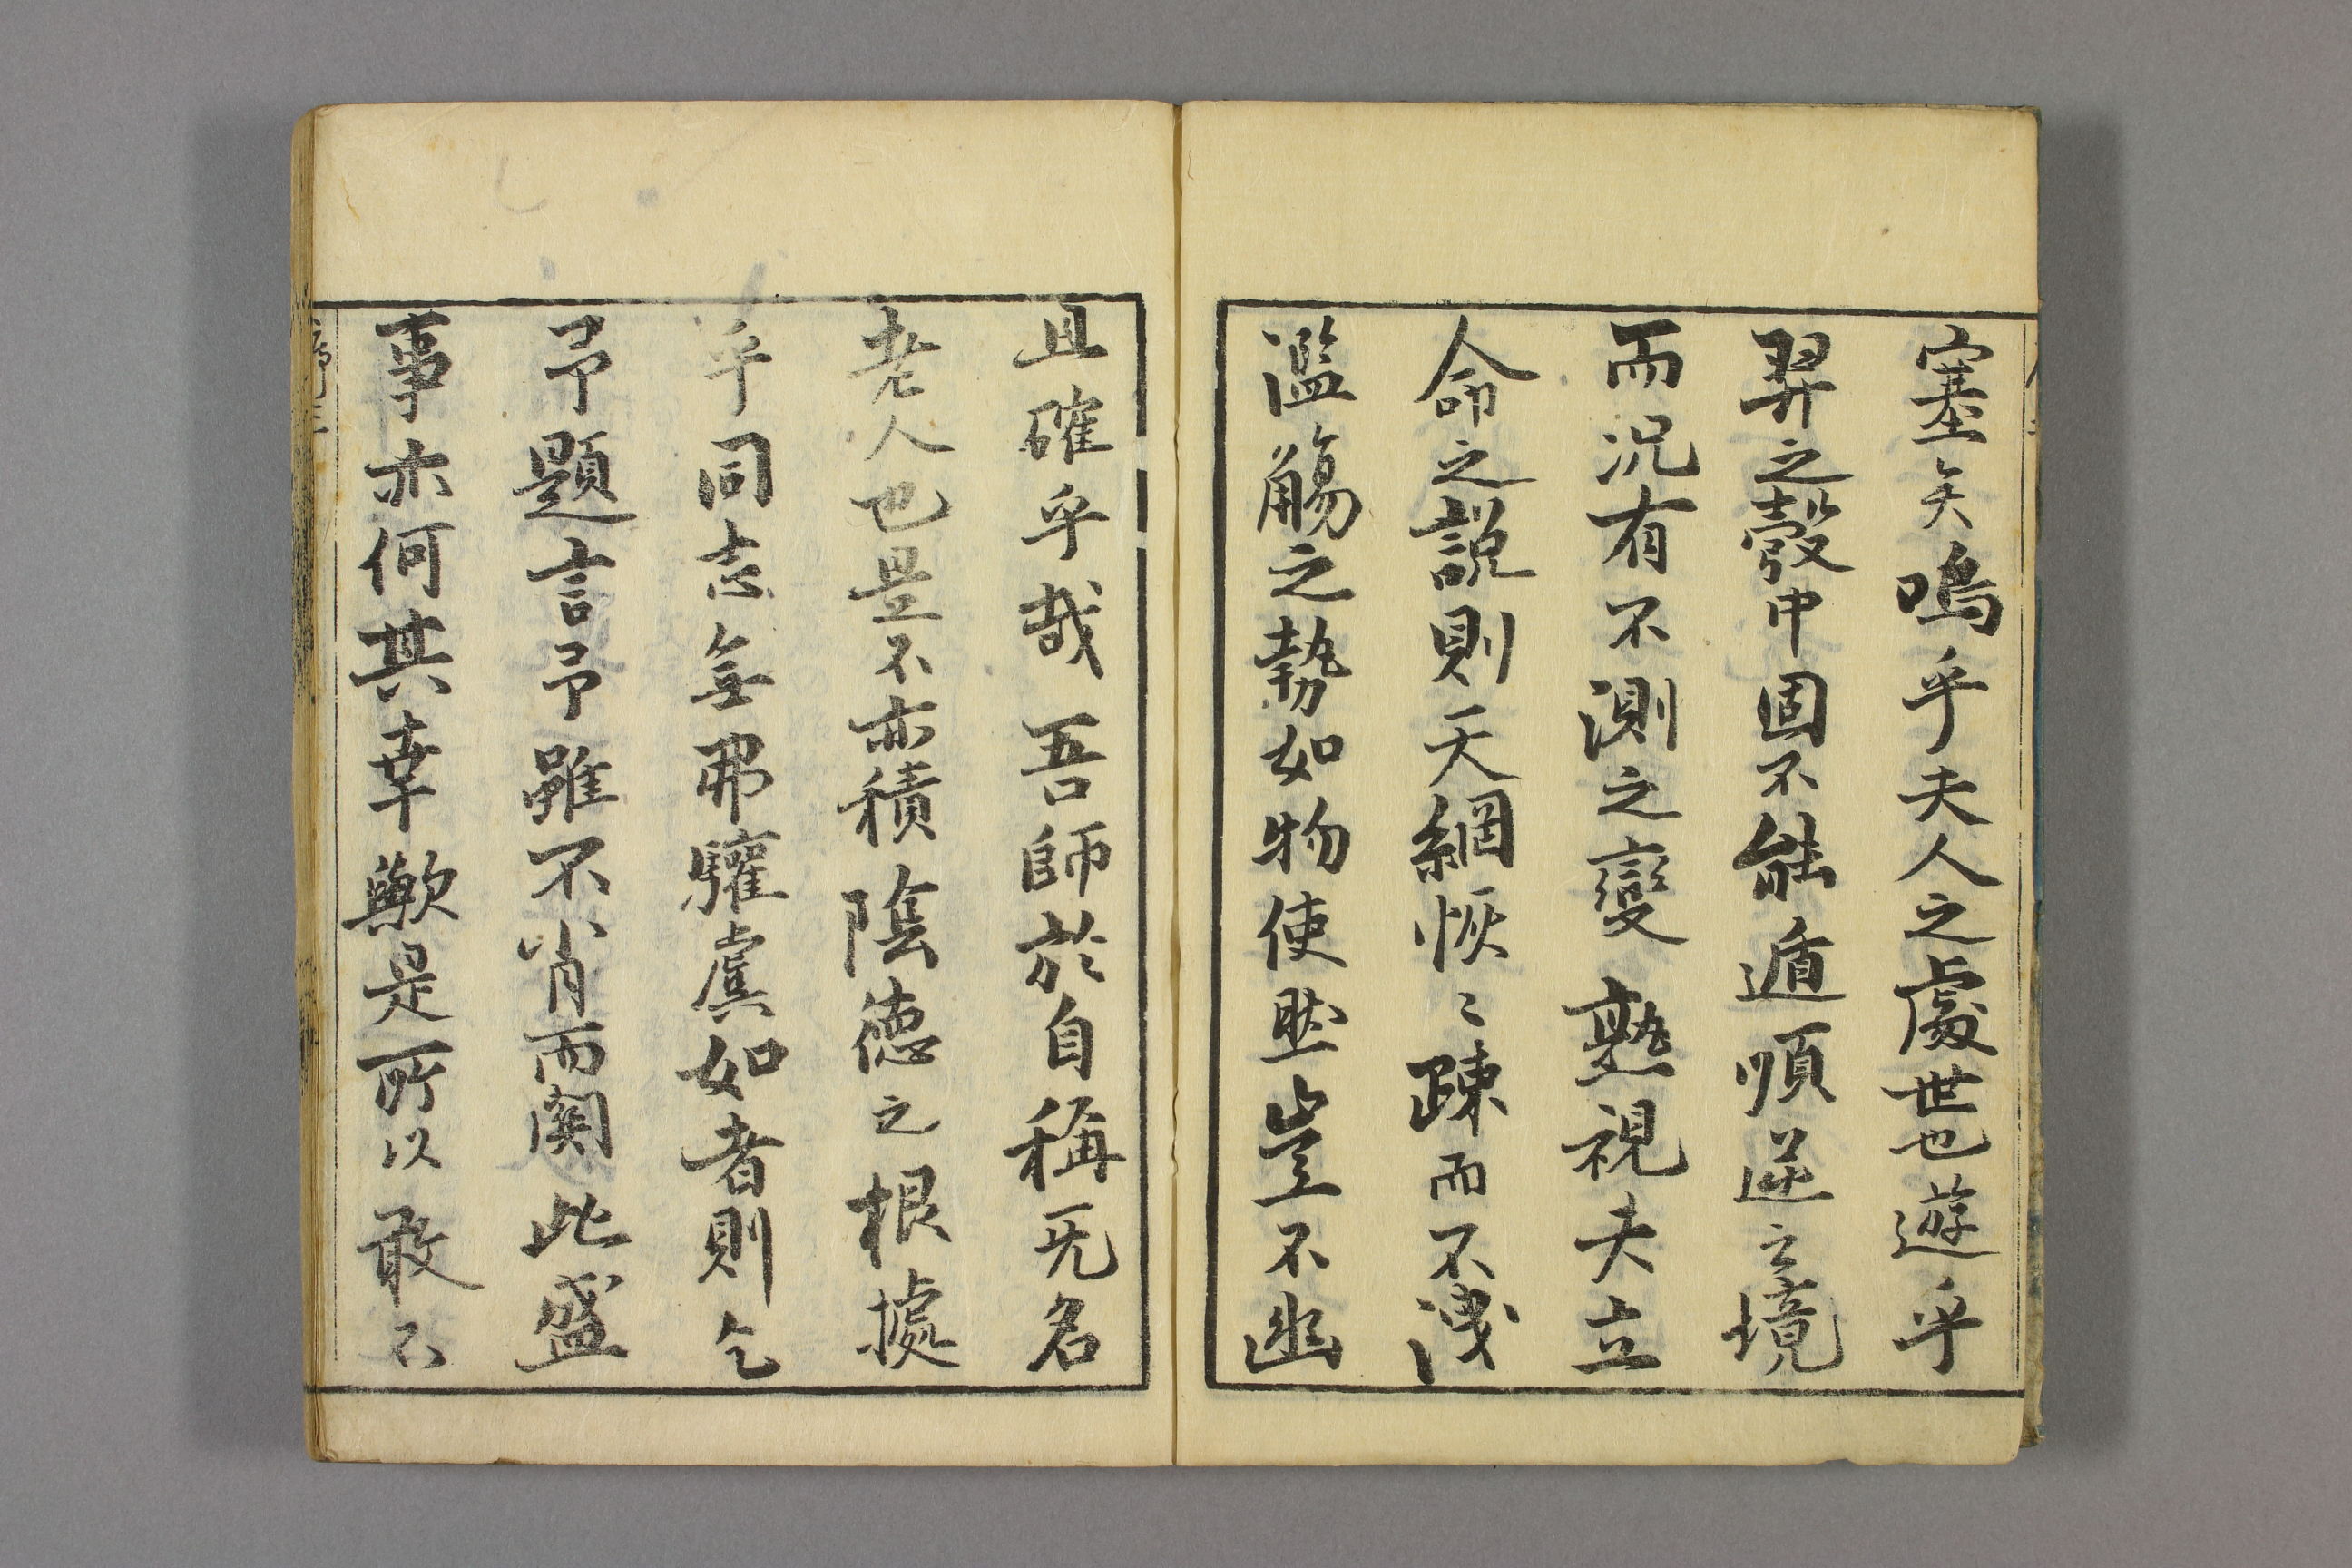 塞矣嗚乎夫人之處世也遊乎
羿之彀中固不能遁順逆之境
而況有不測之變熟視夫立
命之説則天網恢〻疎而不洩
濫觴之勢如物使然豈不幽
且確乎哉吾師於自稱旡名
老人也是不亦積陰德之根據
乎同志無弗驩虞如者則乞
予題言予雖不肖而関此盛
事亦何其幸歟是所以敢不